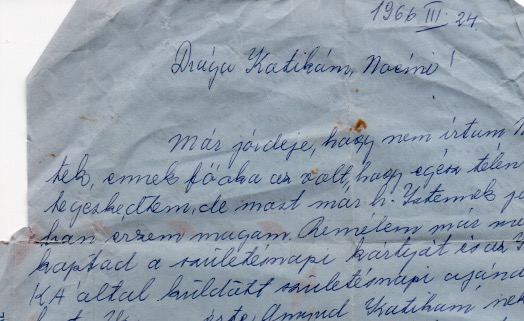 1966 III. 24.
Drága Katikám, Nocini!
Már jóideje, hogy nem írtam N
tek, ennek főoka az volt, hogy egész télen
tegeskedtem, de most már h. Istennek jo
ban érzem magam. Remélem már me
kaptad a születésnapi kártyát és az I
KA által küldött születésnapi ajánd
érte. Annyid Katikám nek